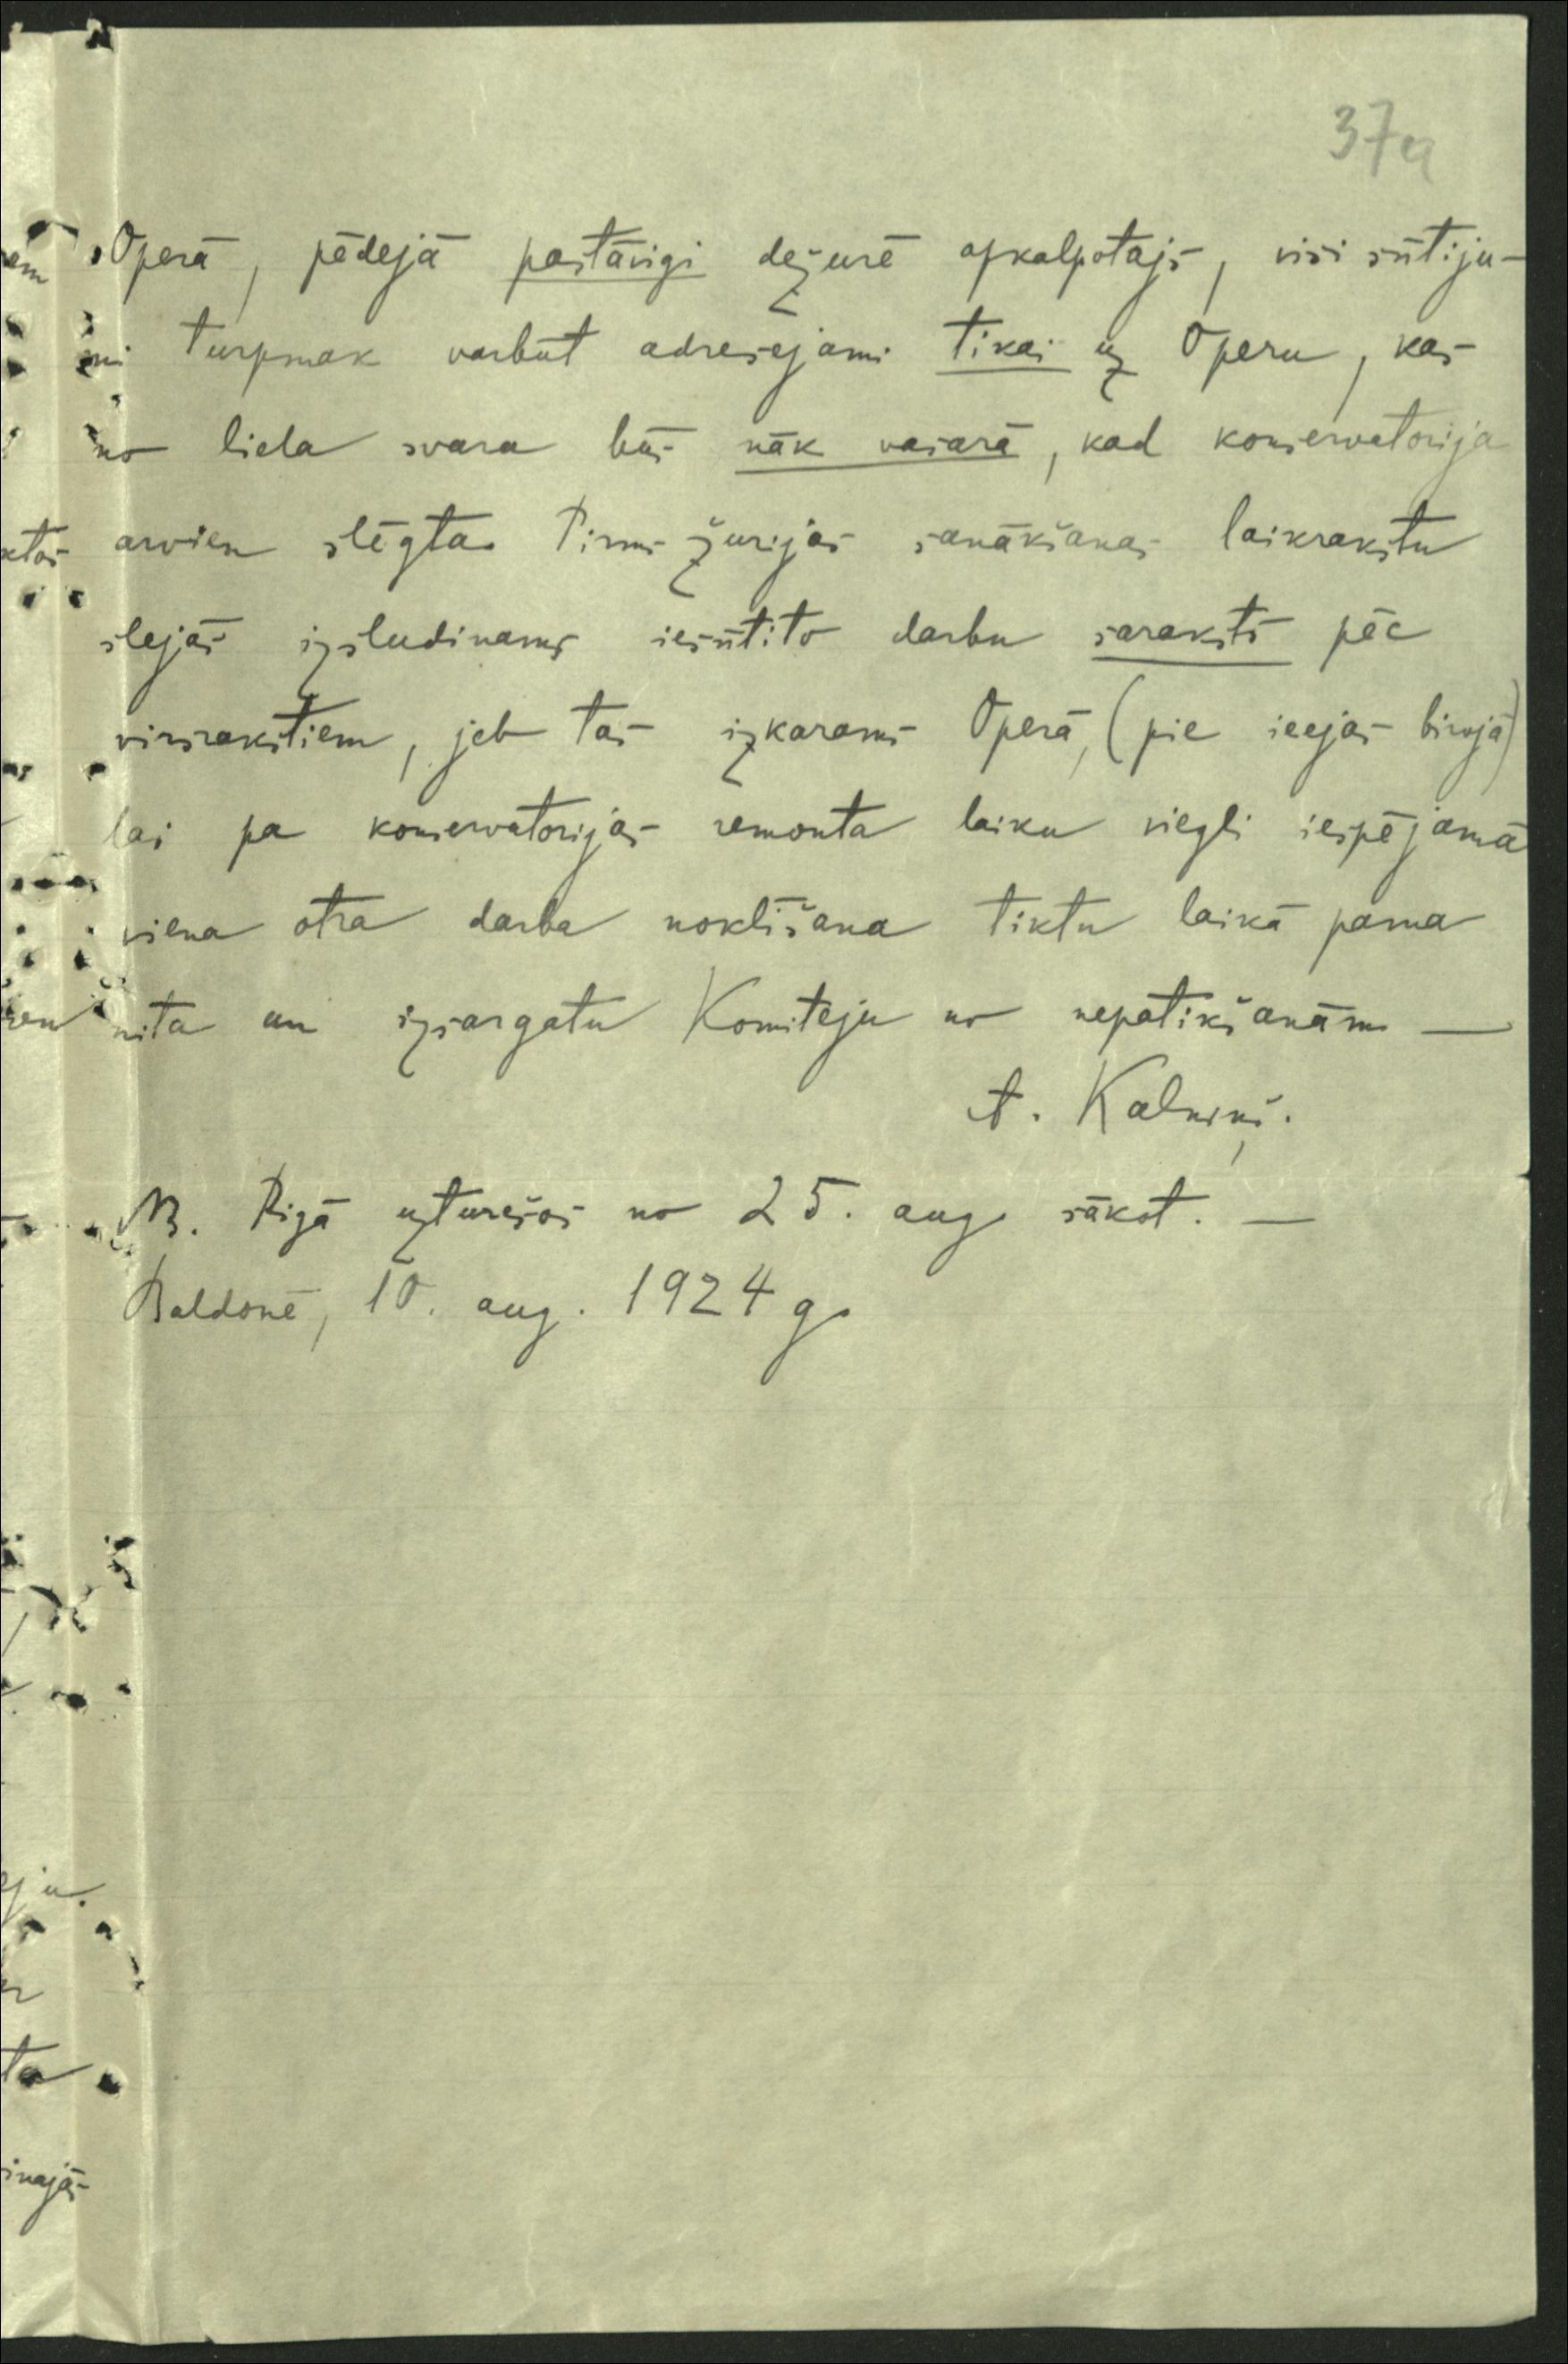 37a
Operā, pēdejā pastāvigi dežurē apkalpotajs, visi sūtiju-
mi turpmak varbūt adresejami tikai uz Operu, kas
no liela svara būs nāk vasarā, kad konservatorija
arvien slēgta. Pirms žurijas sanākšanas laikrakstu
slejās izsludinams iesūtito darbu saraksts pēc
virsrakstiem, jeb tas izkarams Operā, (pie ieejas birojā)
lai pa konservatorijas remonta laiku viegli iespējamā
viena otra darba noklīšana tiktu laikā pama
nita un izsargatu Komiteju no nepatikšanām —
A. Kalniņš.
NB. Rigā uzturēšos no 25. aug. sākot. —
Baldonē, 10. aug. 1924 g.